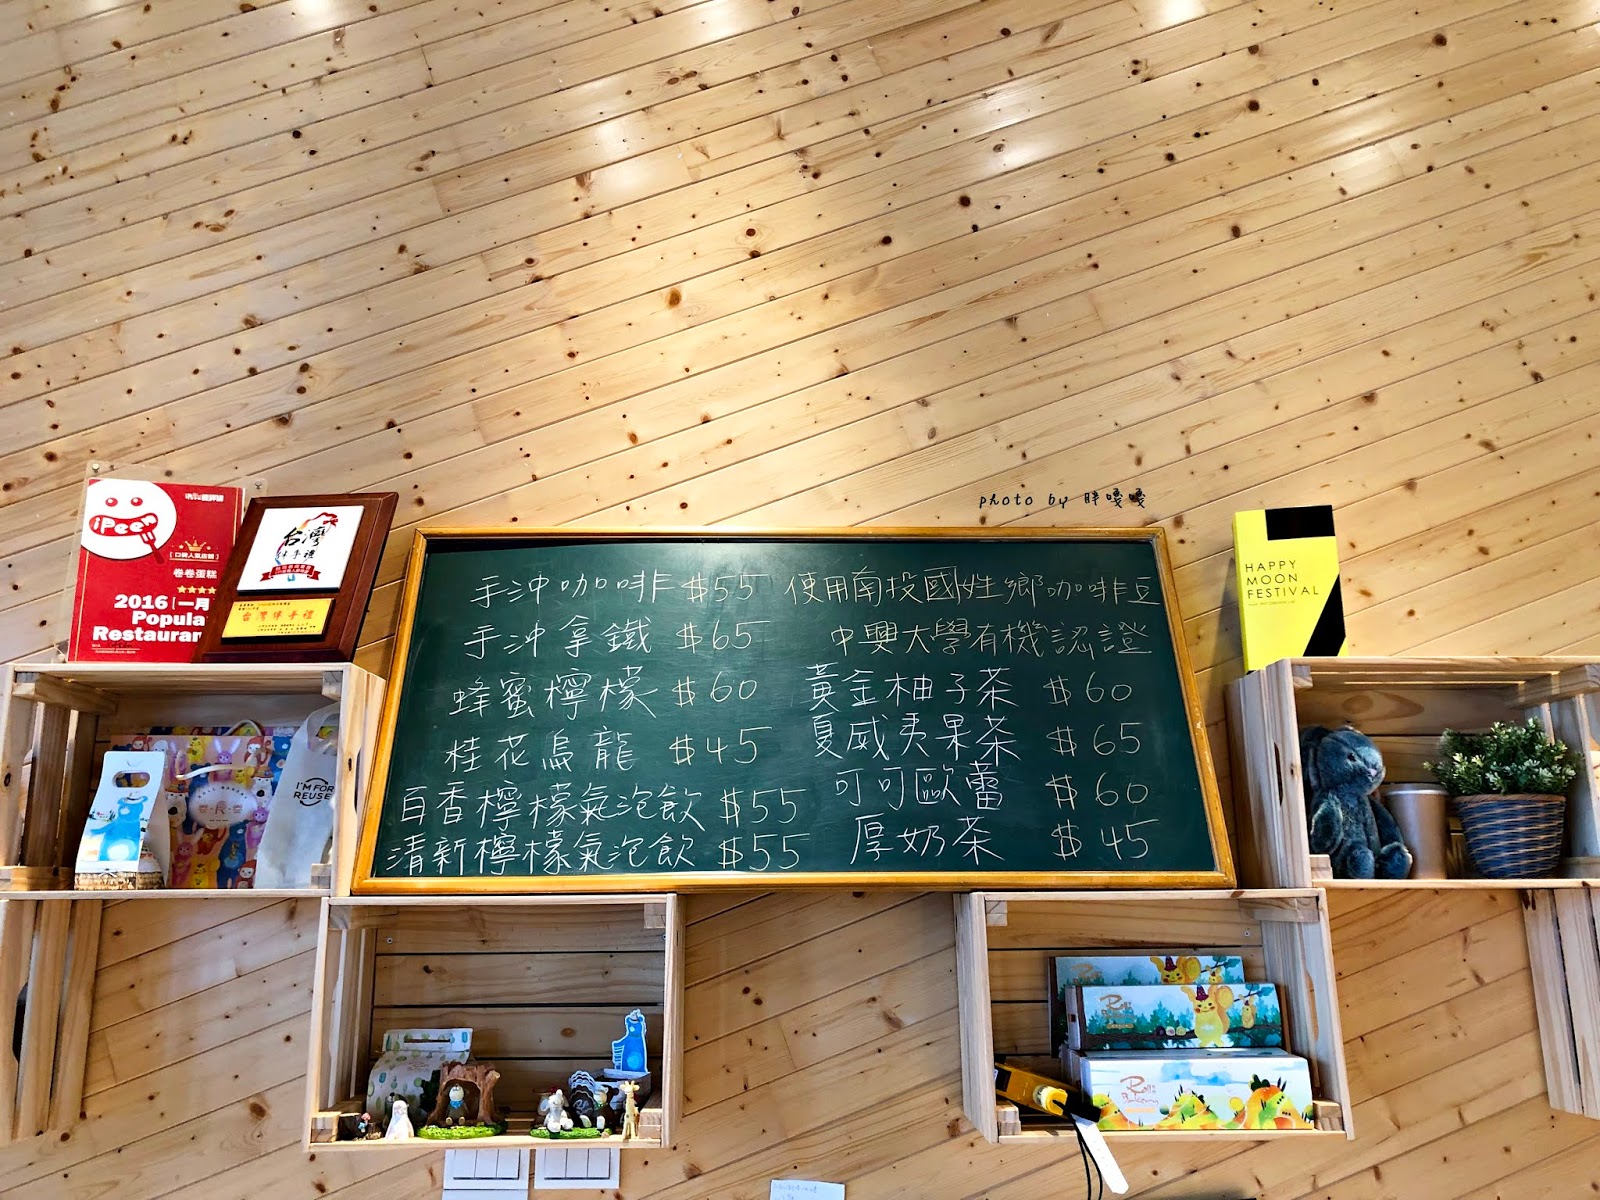 photo by 胖嘎嘎
iPeen
口袋人氣店舖
卷卷蛋糕
2016 一月
Popula
Restauran
台灣
伴手禮
台灣伴手禮
HAPPY
MOON
FESTIVAL
手沖咖啡 $55 使用南投國姓鄉咖啡豆
手沖拿鐵 $65 中興大學有機認證
蜂蜜檸檬 $60 黃金柚子茶 $60
桂花烏龍 $45 夏威夷果茶 $65
百香檸檬氣泡飲 $55 可可歐蕾 $60
清新檸檬氣泡飲 $55 厚奶茶 $45
I'M FOR
REUSE